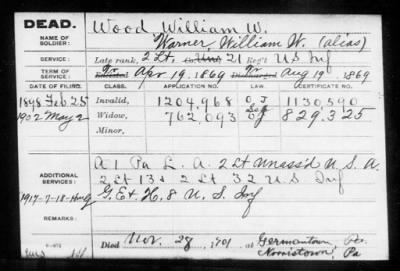 DEAD.
Wood William W.
NAME OF SOLDIER:
Warner, William W. (alias)
SERVICE:
Late rank, 2 Lt. Co. Un. 21 Reg't US Inf
TERM OF SERVICE:
Enlisted Apr 19, 1869 Discharged Aug 19, 1869
DATE OF FILING. CLASS. APPLICATION NO. LAW. CERTIFICATE NO.
1898 Feb 25 Invalid, 1204,968 1130,590
1902 May 2 Widow, 762,093 829,325
Minor,
ADDITIONAL SERVICES:
A 1 Pa L. A. 2 Lt Unass'd U.S.A.
2 Lt 13 & 2 Lt 32 U S Inf
1917-7-18 G. E & H. 8 U.S. Inf
REMARKS:
Died Nov. 28, 1901, at Germantown Pa.
Norristown, Pa